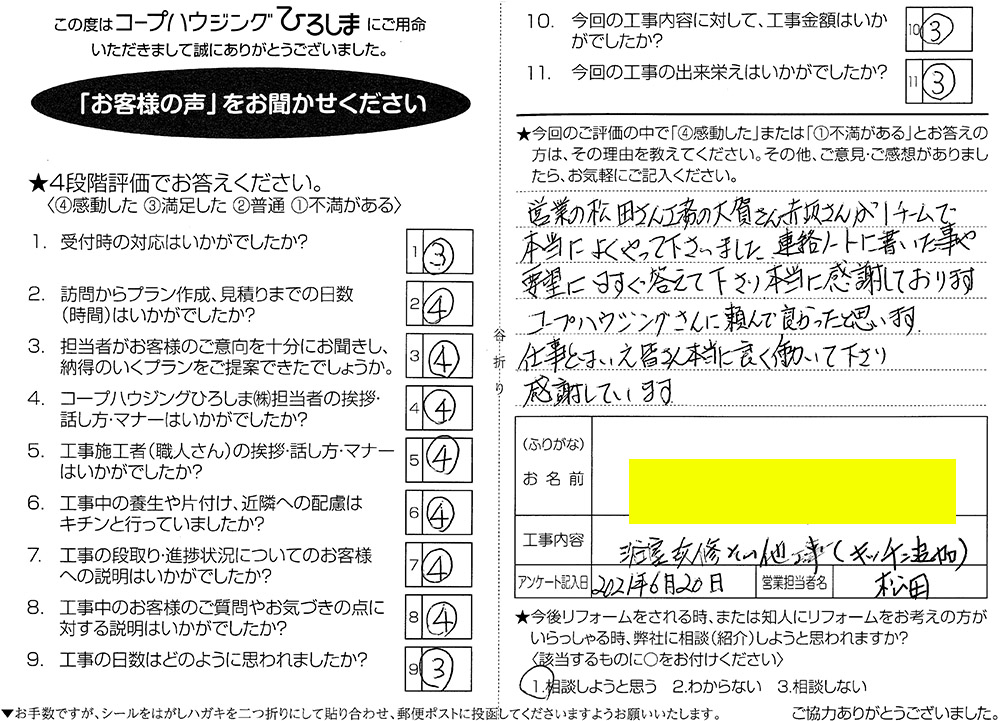 この度はコープハウジングひろしまにご用命
いただきまして誠にありがとうございました。
「お客様の声」をお聞かせください
★4段階評価でお答えください。
〈④感動した ③満足した ②普通 ①不満がある〉
1. 受付時の対応はいかがでしたか?
1 ③
2. 訪問からプラン作成、見積りまでの日数
(時間)はいかがでしたか?
2 ④
3. 担当者がお客様のご意向を十分にお聞きし、
納得のいくプランをご提案できたでしょうか。
3 ④
4. コープハウジングひろしま㈱担当者の挨拶・
話し方・マナーはいかがでしたか?
4 ④
5. 工事施工者(職人さん)の挨拶・話し方・マナー
はいかがでしたか?
5 ④
6. 工事中の養生や片付け、近隣への配慮は
キチンと行っていましたか?
6 ④
7. 工事の段取り・進捗状況についてのお客様
への説明はいかがでしたか?
7 ④
8. 工事中のお客様のご質問やお気づきの点に
対する説明はいかがでしたか?
8 ④
9. 工事の日数はどのように思われましたか?
9 ③
▼お手数ですが、シールをはがしハガキを二つ折りにして貼り合わせ、郵便ポストに投函してくださいますようお願いいたします。
谷折り
10. 今回の工事内容に対して、工事金額はいか
がでしたか?
10 ③
11. 今回の工事の出来栄えはいかがでしたか?
11 ③
★今回のご評価の中で「④感動した」または「①不満がある」とお答えの
方は、その理由を教えてください。その他、ご意見・ご感想がありまし
たら、お気軽にご記入ください。
営業の松田さん工務の大賀さん赤坂さんが1チームで
本当によくやって下さいました 連絡ノートに書いた事や
要望にはすぐ答えて下さり本当に感謝しております
コープハウジングさんに頼んで良かったと思います.
仕事とはいえ皆さん本当に良く働いて下さり
感謝しています
(ふりがな)
お名前
工事内容 浴室改修その他工事(キッチン追加)
アンケート記入日 2021年6月20日 営業担当者名 松田
★今後リフォームをされる時、または知人にリフォームをお考えの方が
いらっしゃる時、弊社に相談(紹介)しようと思われますか?
〈該当するものに○をお付けください〉
1.相談しようと思う 2.わからない 3.相談しない
ご協力ありがとうございました。